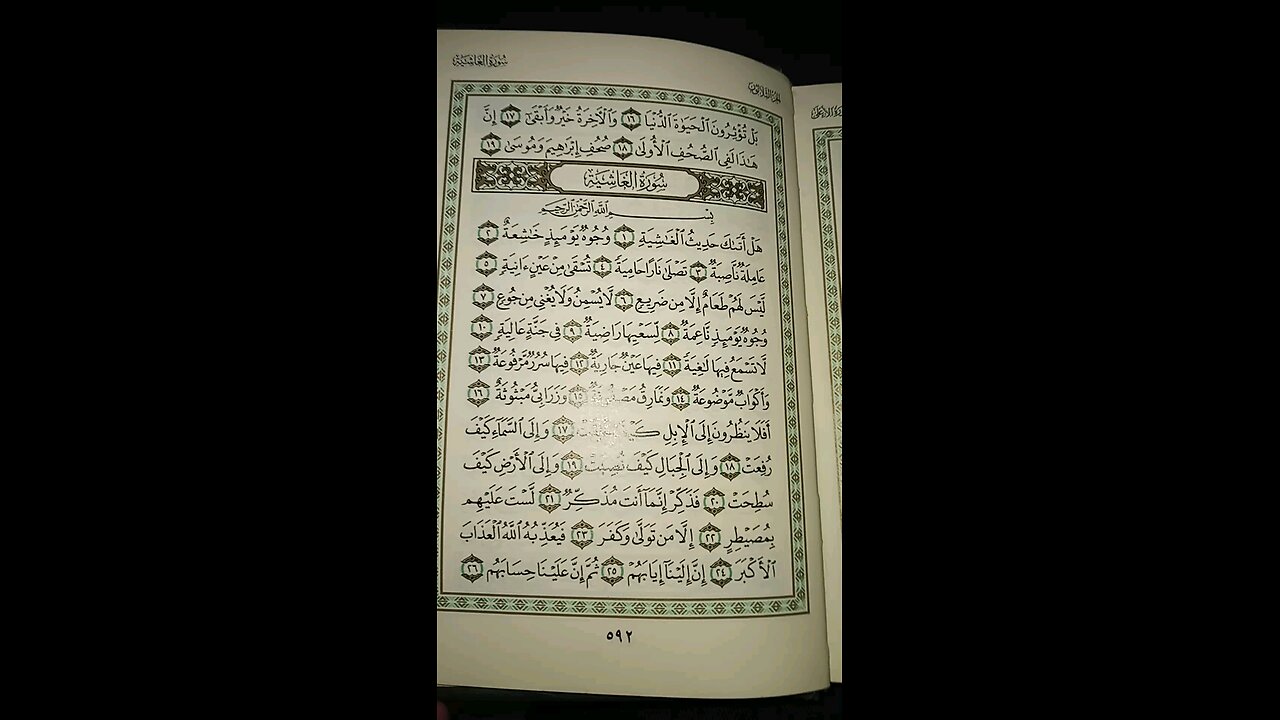 سُورَةُ الغَاشِيَةِ
الجُزْءُ الثَّلَاثُونَ
بَلْ تُؤْثِرُونَ الْحَيَوٰةَ الدُّنْيَا ١٦ وَالْآخِرَةُ خَيْرٌ وَأَبْقَىٰ ١٧ إِنَّ
هَٰذَا لَفِي الصُّحُفِ الْأُولَىٰ ١٨ صُحُفِ إِبْرَاهِيمَ وَمُوسَىٰ ١٩
سُورَةُ الغَاشِيَةِ
بِسْمِ اللَّهِ الرَّحْمَٰنِ الرَّحِيمِ
هَلْ أَتَىٰكَ حَدِيثُ الْغَاشِيَةِ ١ وُجُوهٌ يَوْمَئِذٍ خَاشِعَةٌ ٢
عَامِلَةٌ نَّاصِبَةٌ ٣ تَصْلَىٰ نَارًا حَامِيَةً ٤ تُسْقَىٰ مِنْ عَيْنٍ ءَانِيَةٍ ٥
لَّيْسَ لَهُمْ طَعَامٌ إِلَّا مِن ضَرِيعٍ ٦ لَّا يُسْمِنُ وَلَا يُغْنِي مِن جُوعٍ ٧
وُجُوهٌ يَوْمَئِذٍ نَّاعِمَةٌ ٨ لِّسَعْيِهَا رَاضِيَةٌ ٩ فِي جَنَّةٍ عَالِيَةٍ ١٠
لَّا تَسْمَعُ فِيهَا لَٰغِيَةً ١١ فِيهَا عَيْنٌ جَارِيَةٌ ١٢ فِيهَا سُرُرٌ مَّرْفُوعَةٌ ١٣
وَأَكْوَابٌ مَّوْضُوعَةٌ ١٤ وَنَمَارِقُ مَصْفُوفَةٌ ١٥ وَزَرَابِيُّ مَبْثُوثَةٌ ١٦
أَفَلَا يَنظُرُونَ إِلَى الْإِبِلِ كَيْفَ خُلِقَتْ ١٧ وَإِلَى السَّمَاءِ كَيْفَ
رُفِعَتْ ١٨ وَإِلَى الْجِبَالِ كَيْفَ نُصِبَتْ ١٩ وَإِلَى الْأَرْضِ كَيْفَ
سُطِحَتْ ٢٠ فَذَكِّرْ إِنَّمَا أَنتَ مُذَكِّرٌ ٢١ لَّسْتَ عَلَيْهِم
بِمُصَيْطِرٍ ٢٢ إِلَّا مَن تَوَلَّىٰ وَكَفَرَ ٢٣ فَيُعَذِّبُهُ اللَّهُ الْعَذَابَ
الْأَكْبَرَ ٢٤ إِنَّ إِلَيْنَا إِيَابَهُمْ ٢٥ ثُمَّ إِنَّ عَلَيْنَا حِسَابَهُم ٢٦
٥٩٢